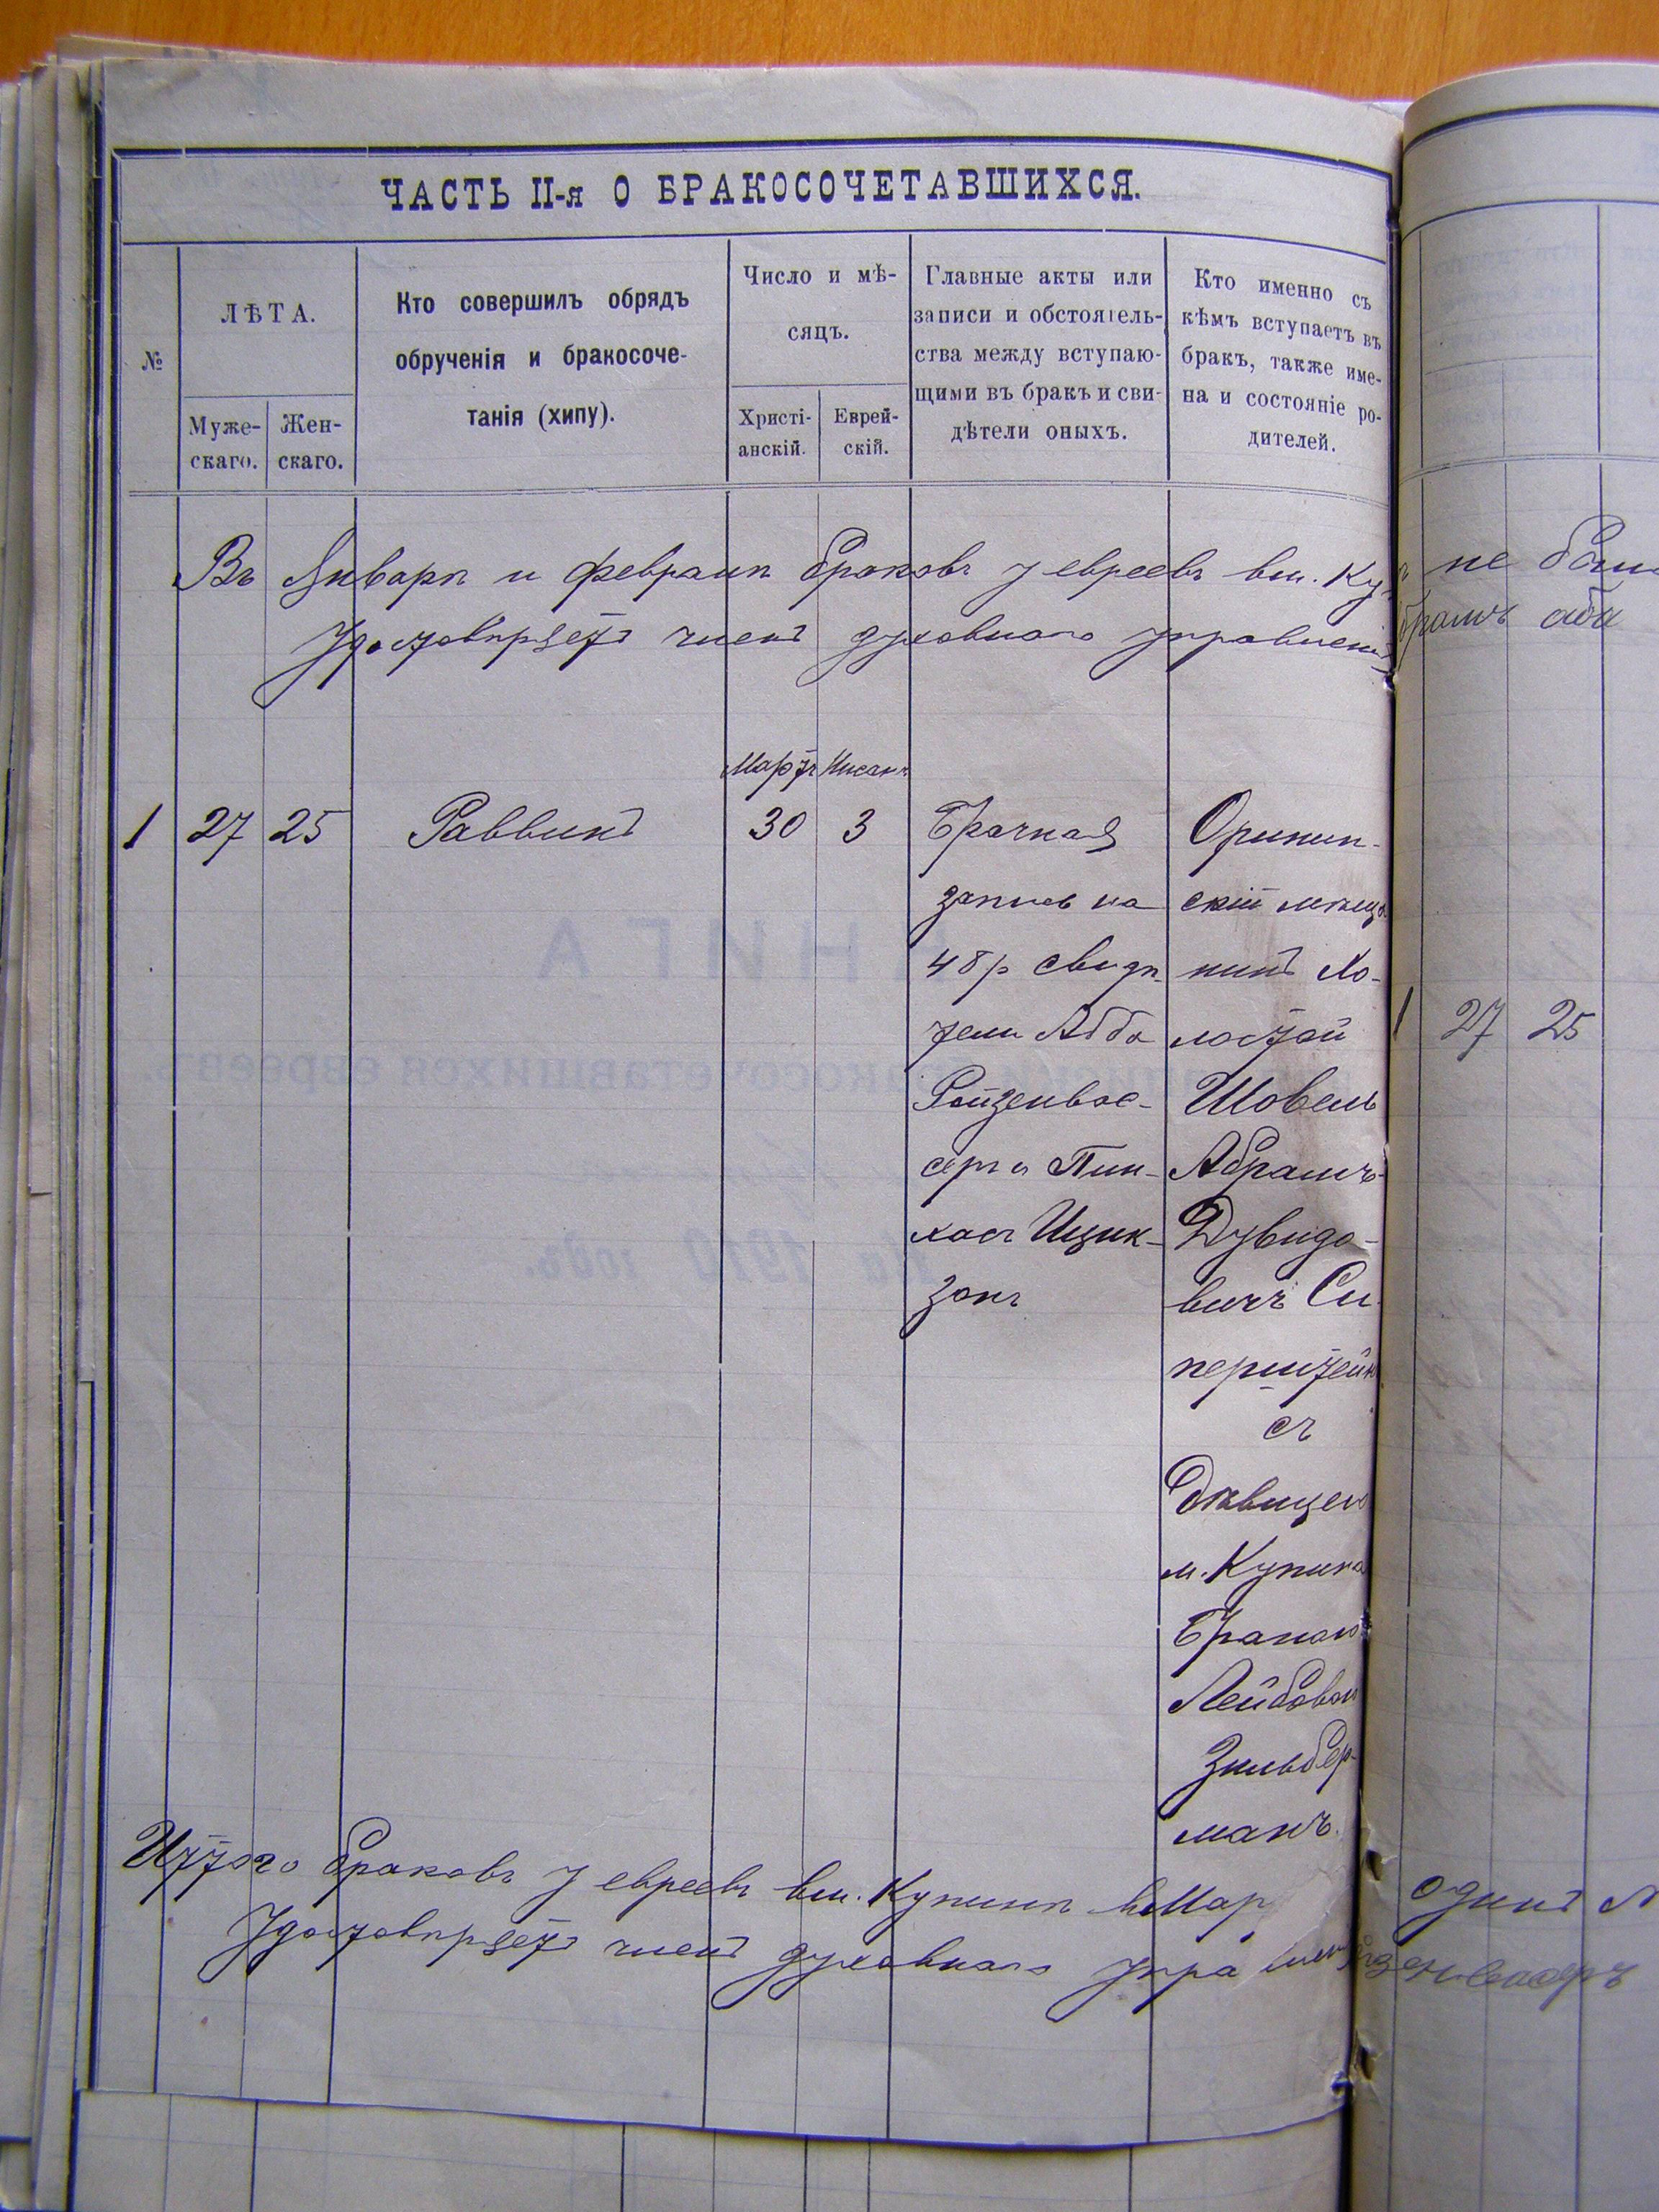 ЧАСТЬ II-я О БРАКОСОЧЕТАВШИХСЯ.
№
ЛѢТА.
Муже-
скаго.
Жен-
скаго.
Кто совершилъ обрядъ
обрученія и бракосоче-
танія (хипу).
Число и мѣ-
сяцъ.
Христі-
анскій.
Еврей-
скій.
Главные акты или
записи и обстоятель-
ства между вступаю-
щими въ бракъ и сви-
дѣтели оныхъ.
Кто именно съ
кѣмъ вступаетъ въ
бракъ, также име-
на и состояніе ро-
дителей.
Въ Январѣ и Февралѣ браковъ у евреевъ вм. Ку не
Удостовѣряетъ членъ духовнаго управленія
Мартъ Нисанъ
1 27 25 Раввинъ 30 3
Брачная
запись на
48 р свидѣ
тели Абба
Ройзенвас-
серъ и Пин-
хасъ Ицик-
зонъ
Оринин-
скій мѣща
нинъ Хо-
лостой
Шовель
Абрамъ-
Дувидо-
вичъ Си
перштейн
съ
Дѣвицею
м. Купина
Браною
Лейбовою
Зильбер-
манъ.
1 27 25
Итого браковъ у евреевъ вм. Купинѣ вМар одинъ
Удостовѣряетъ членъ духовнаго упра